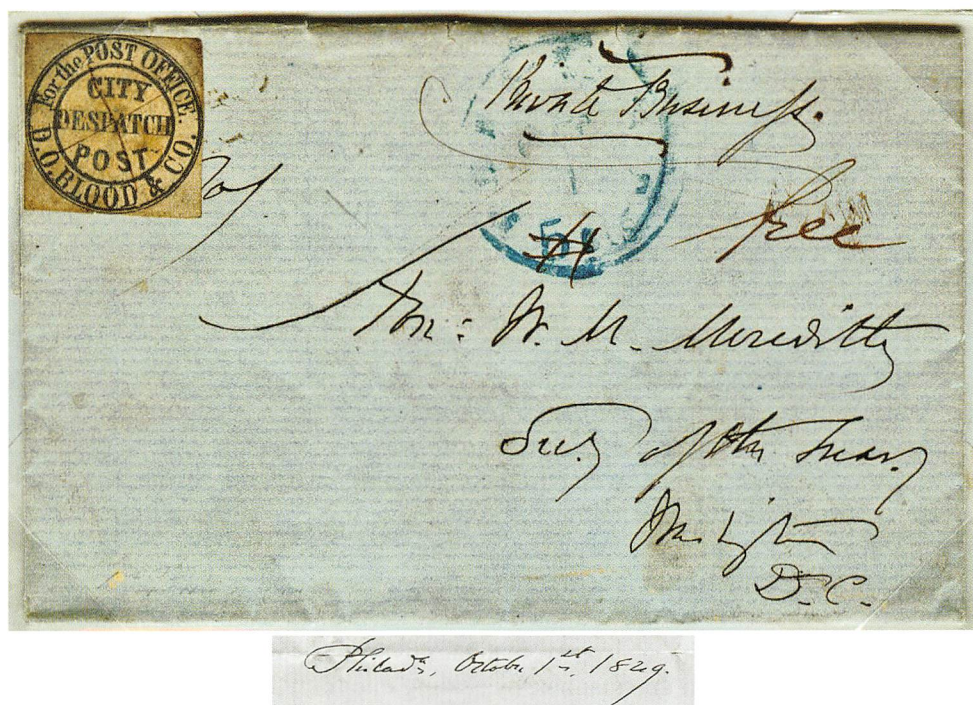 For the POST OFFICE.
CITY
DESPATCH
POST.
D.O. BLOOD & CO.
Private Business.
free
Hon: W. M. Meredith
Secy of the Treasy
Washington
D.C.
Philada, October 1st, 1849.